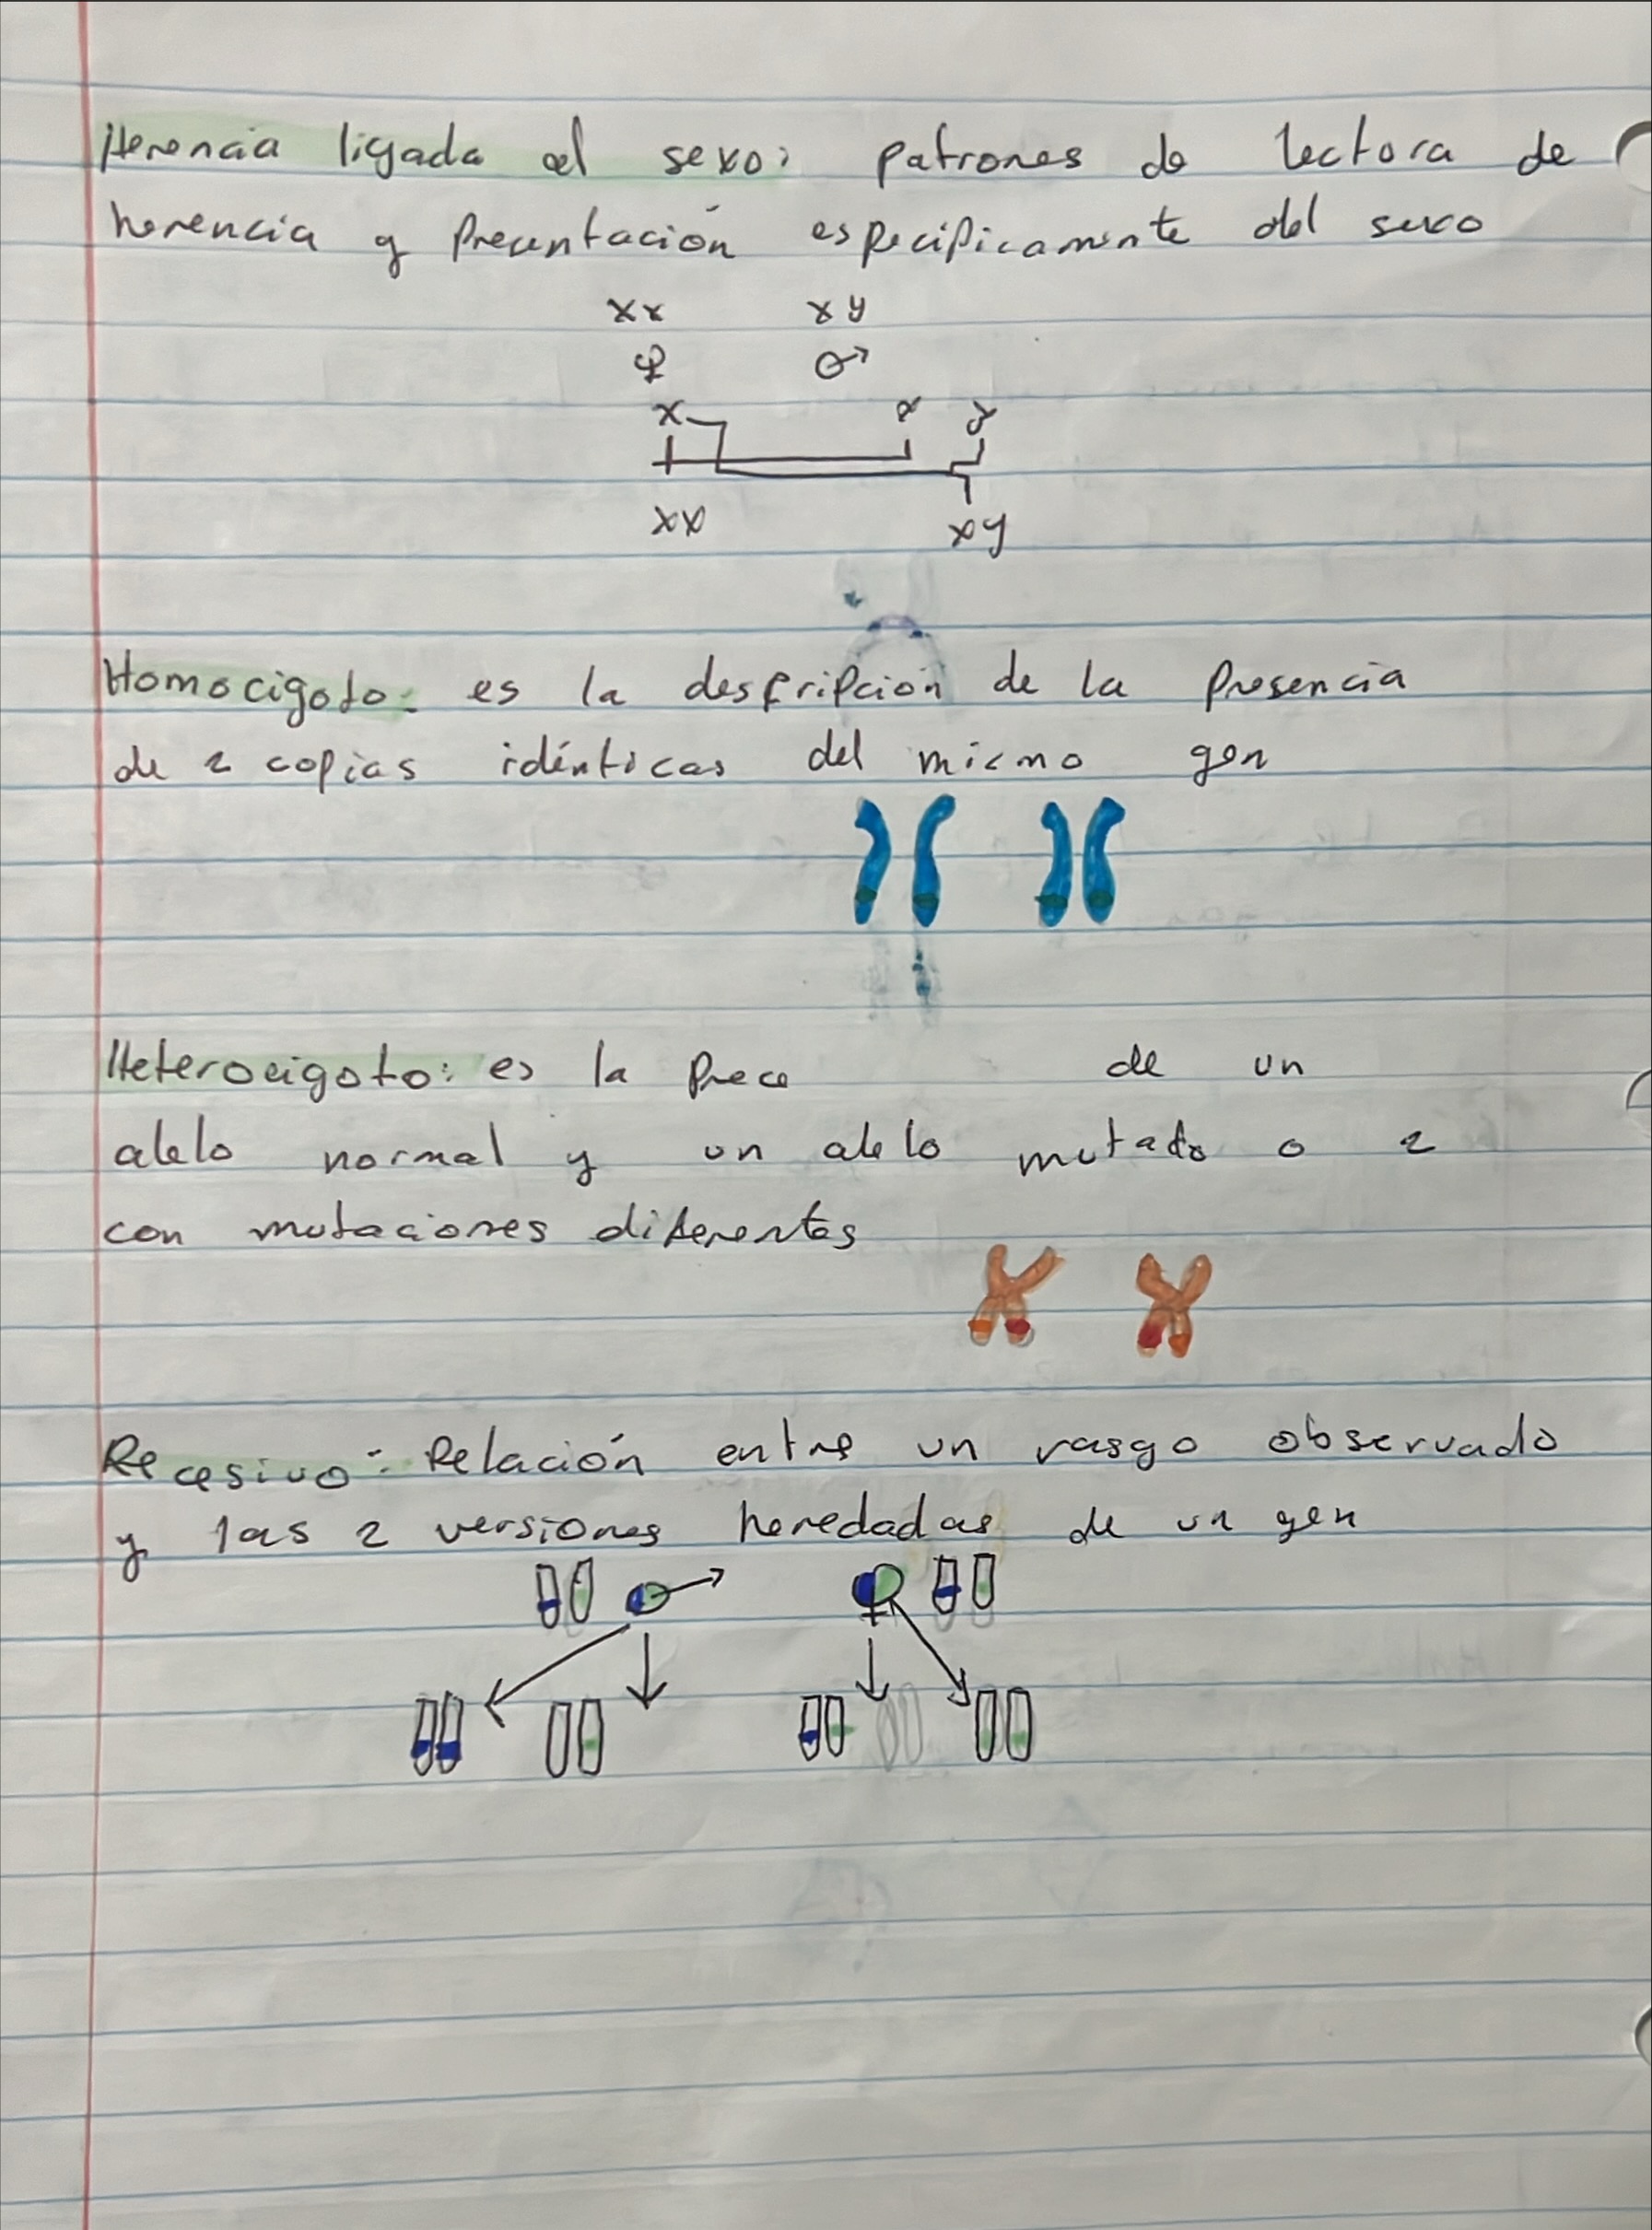 Herencia ligada al sexo: patrones de lectora de
herencia y Precentación especificamente del sexo
xx xy
♀ ♂
x x y
xx xy
Homocigoto: es la descripción de la Presencia
de 2 copias idénticas del micmo gen
Heterocigoto: es la Prece de un
alelo normal y un alelo mutado o 2
con mutaciones diferentes
Recesivo: Relación entre un rasgo observado
y las 2 versiones heredadas de un gen
♂ ♀